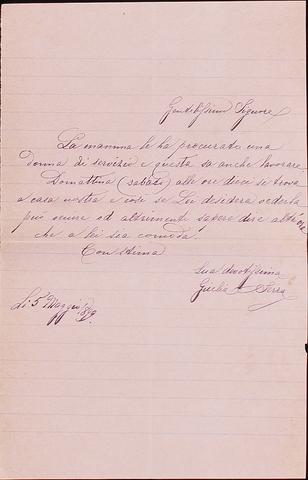 Gentilissima Signora
La mamma le ha procurato una
donna di servizio e questa sa anche lavorare.
Domattina (sabato) alle ore dieci si trova
a casa nostra e così se Lei desidera vederla
può venire od altrimenti sapere dire altre ore
che a lei sia comoda.
Con stima
Sua devotissima
Giulia Serra
Li 5 Maggio